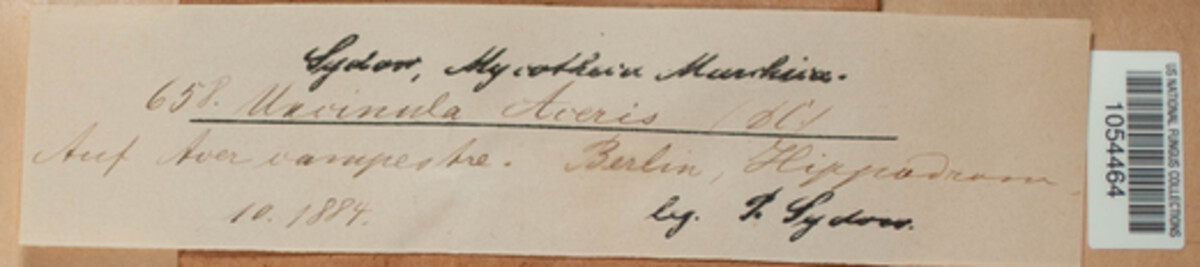 Sydow, Mycotheca Marchica.
658. Uncinula Aceris (DC)
Auf Acer campestre. Berlin, Hippodrom.
10. 1884.
leg. P. Sydow.
US NATIONAL FUNGUS COLLECTIONS
1054464